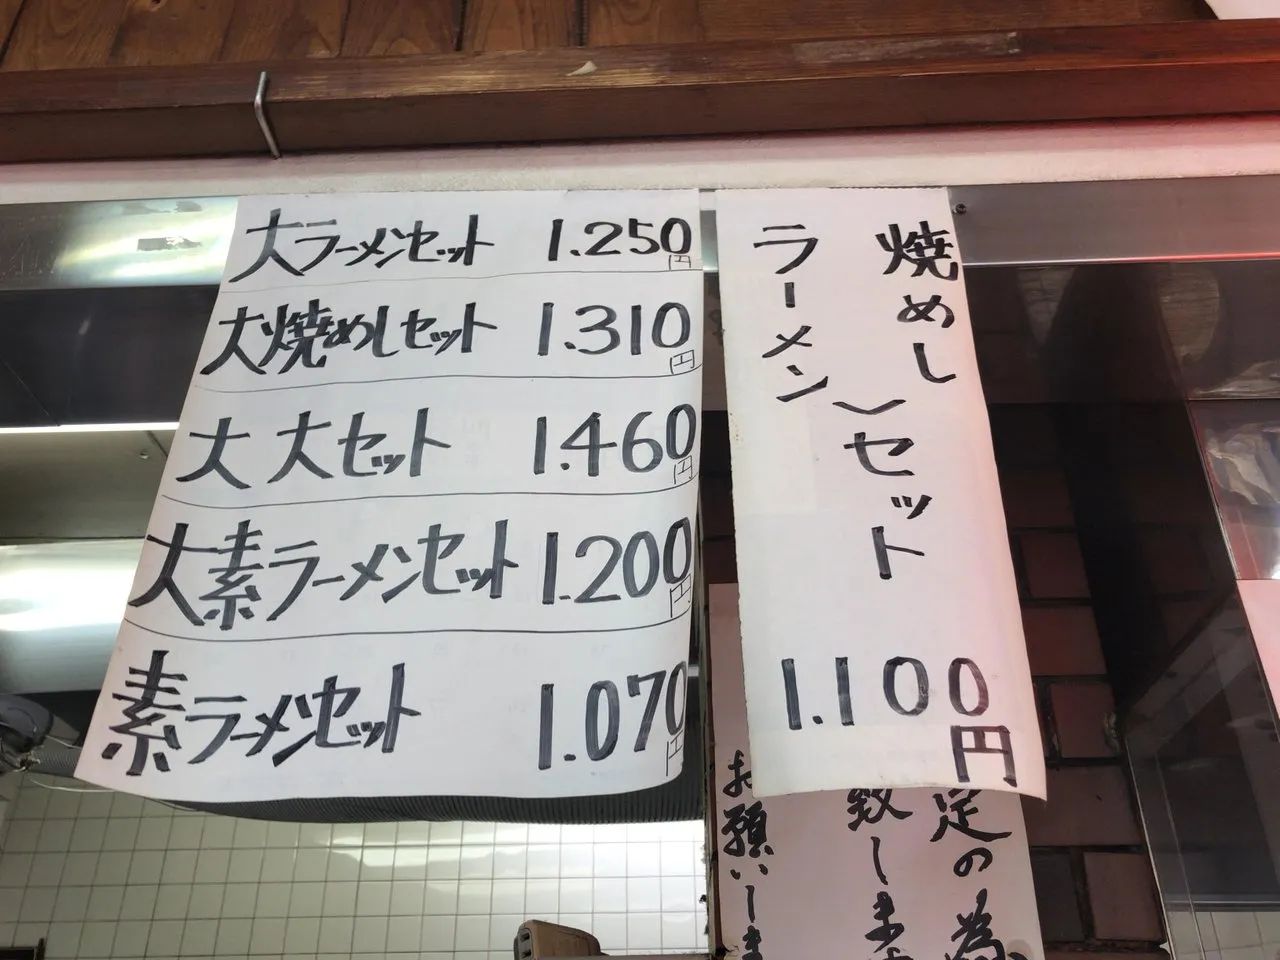 大ラーメンセット 1.250円
大焼めしセット 1.310円
大大セット 1.460円
大素ラーメンセット 1.200円
素ラーメンセット 1.070円
焼めし
ラーメン
セット
1.100円
定の為
致しま
お願いしま